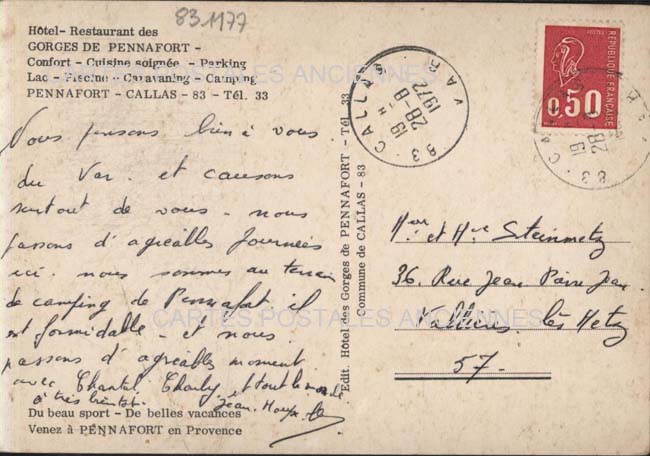 83.1177
Hôtel- Restaurant des
GORGES DE PENNAFORT -
Confort - Cuisine soignée - Parking
Lac - Piscine - Caravaning - Camping
PENNAFORT - CALLAS - 83 - Tél. 33
Vous pensons bien à vous
du Var. et causons
surtout de vous - nous
passons d'agréables journées
ici. nous sommes au terrain
de camping de Pennafort. il
est formidable - et nous
passons d'agréables moment
avec Chantal, Charly et tout le monde
à très bientot. Jean.
Du beau sport - De belles vacances
Venez à PENNAFORT en Provence
Edit. Hôtel des Gorges de PENNAFORT - Tél. 33
Commune de CALLAS - 83
83 - CALLAS
VAR
16 H
28-8
1972
RÉPUBLIQUE FRANÇAISE
POSTES
0,50
83 - C
16
28
et Steinmetz
36. Rue Jean Pierre Jean
Vallières. lès Metz
57.
CARTES POSTALES ANCIENNES
CARTES POSTALES ANCIENNES